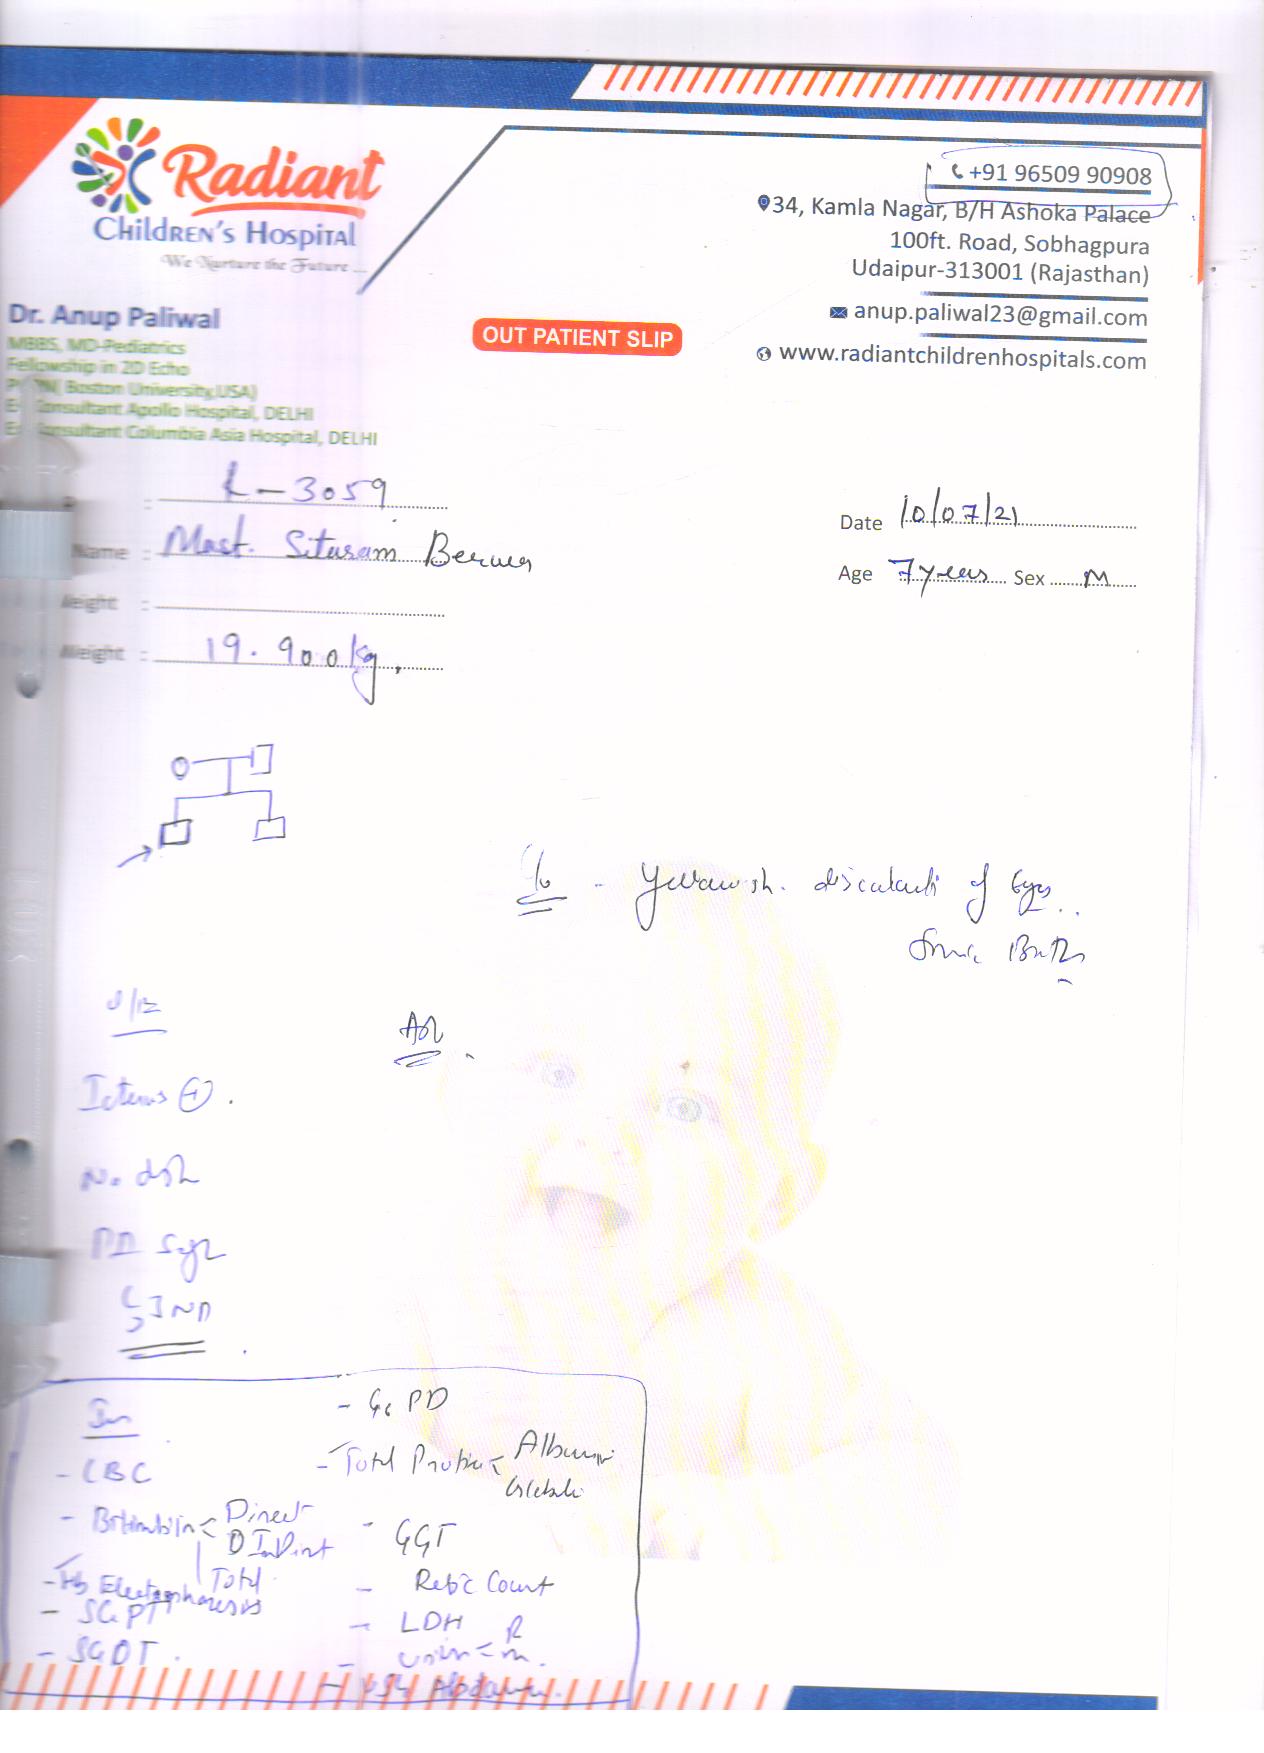 Radiant
Children's Hospital
We Nurture the Future ...
+91 96509 90908
34, Kamla Nagar, B/H Ashoka Palace
100ft. Road, Sobhagpura
Udaipur-313001 (Rajasthan)
anup.paliwal23@gmail.com
www.radiantchildrenhospitals.com
Dr. Anup Paliwal
MBBS, MD-Pediatrics
Fellowship in 2D Echo
(Boston University,USA)
Consultant Apollo Hospital, DELHI
Consultant Columbia Asia Hospital, DELHI
OUT PATIENT SLIP
: L-3059
Date 10/07/21
Name : Mast. Sitaram Berwa
Age 7 years Sex M
:
Weight : 19.900 kg.
of Eyes
Icterus +
No
CBC
Bilirubin < Direct
Total
Hb Electrophoresis
SGPT
SGOT
- G6PD
- Total Protein < Albumin
- GGT
- Retic Count
- LDH
- Urine < R
m.
- USG Abdomen